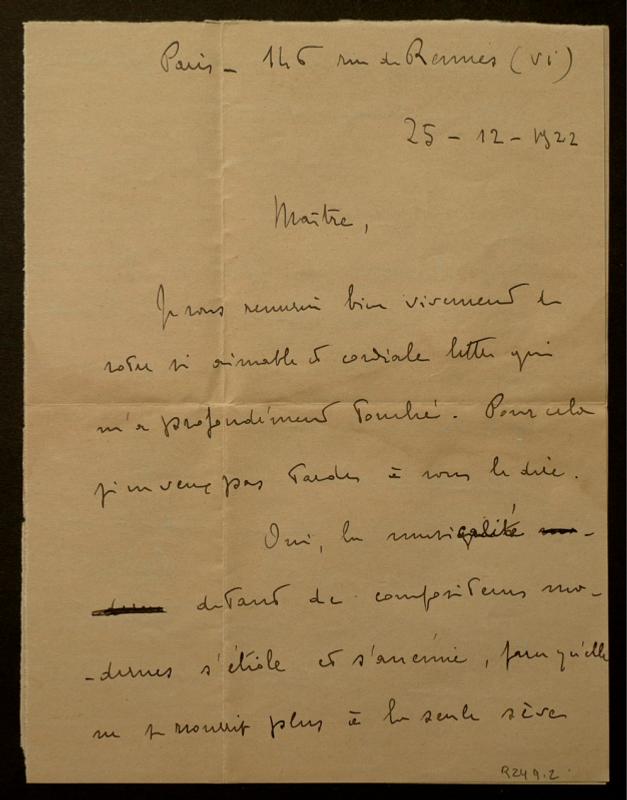 Paris - 146 rue de Rennes (VI)
25 - 12 - 1922
Maître,
Je vous remercie bien vivement de
votre si aimable et cordiale lettre qui
m'a profondément touché. Pour cela
je ne veux pas tarder à vous le dire.
Oui, la musicalité
de tant de compositeurs mo-
-dernes s'étiole et s'anémie, parce qu'elle
ne se nourrit plus à la seule sève
9249.2